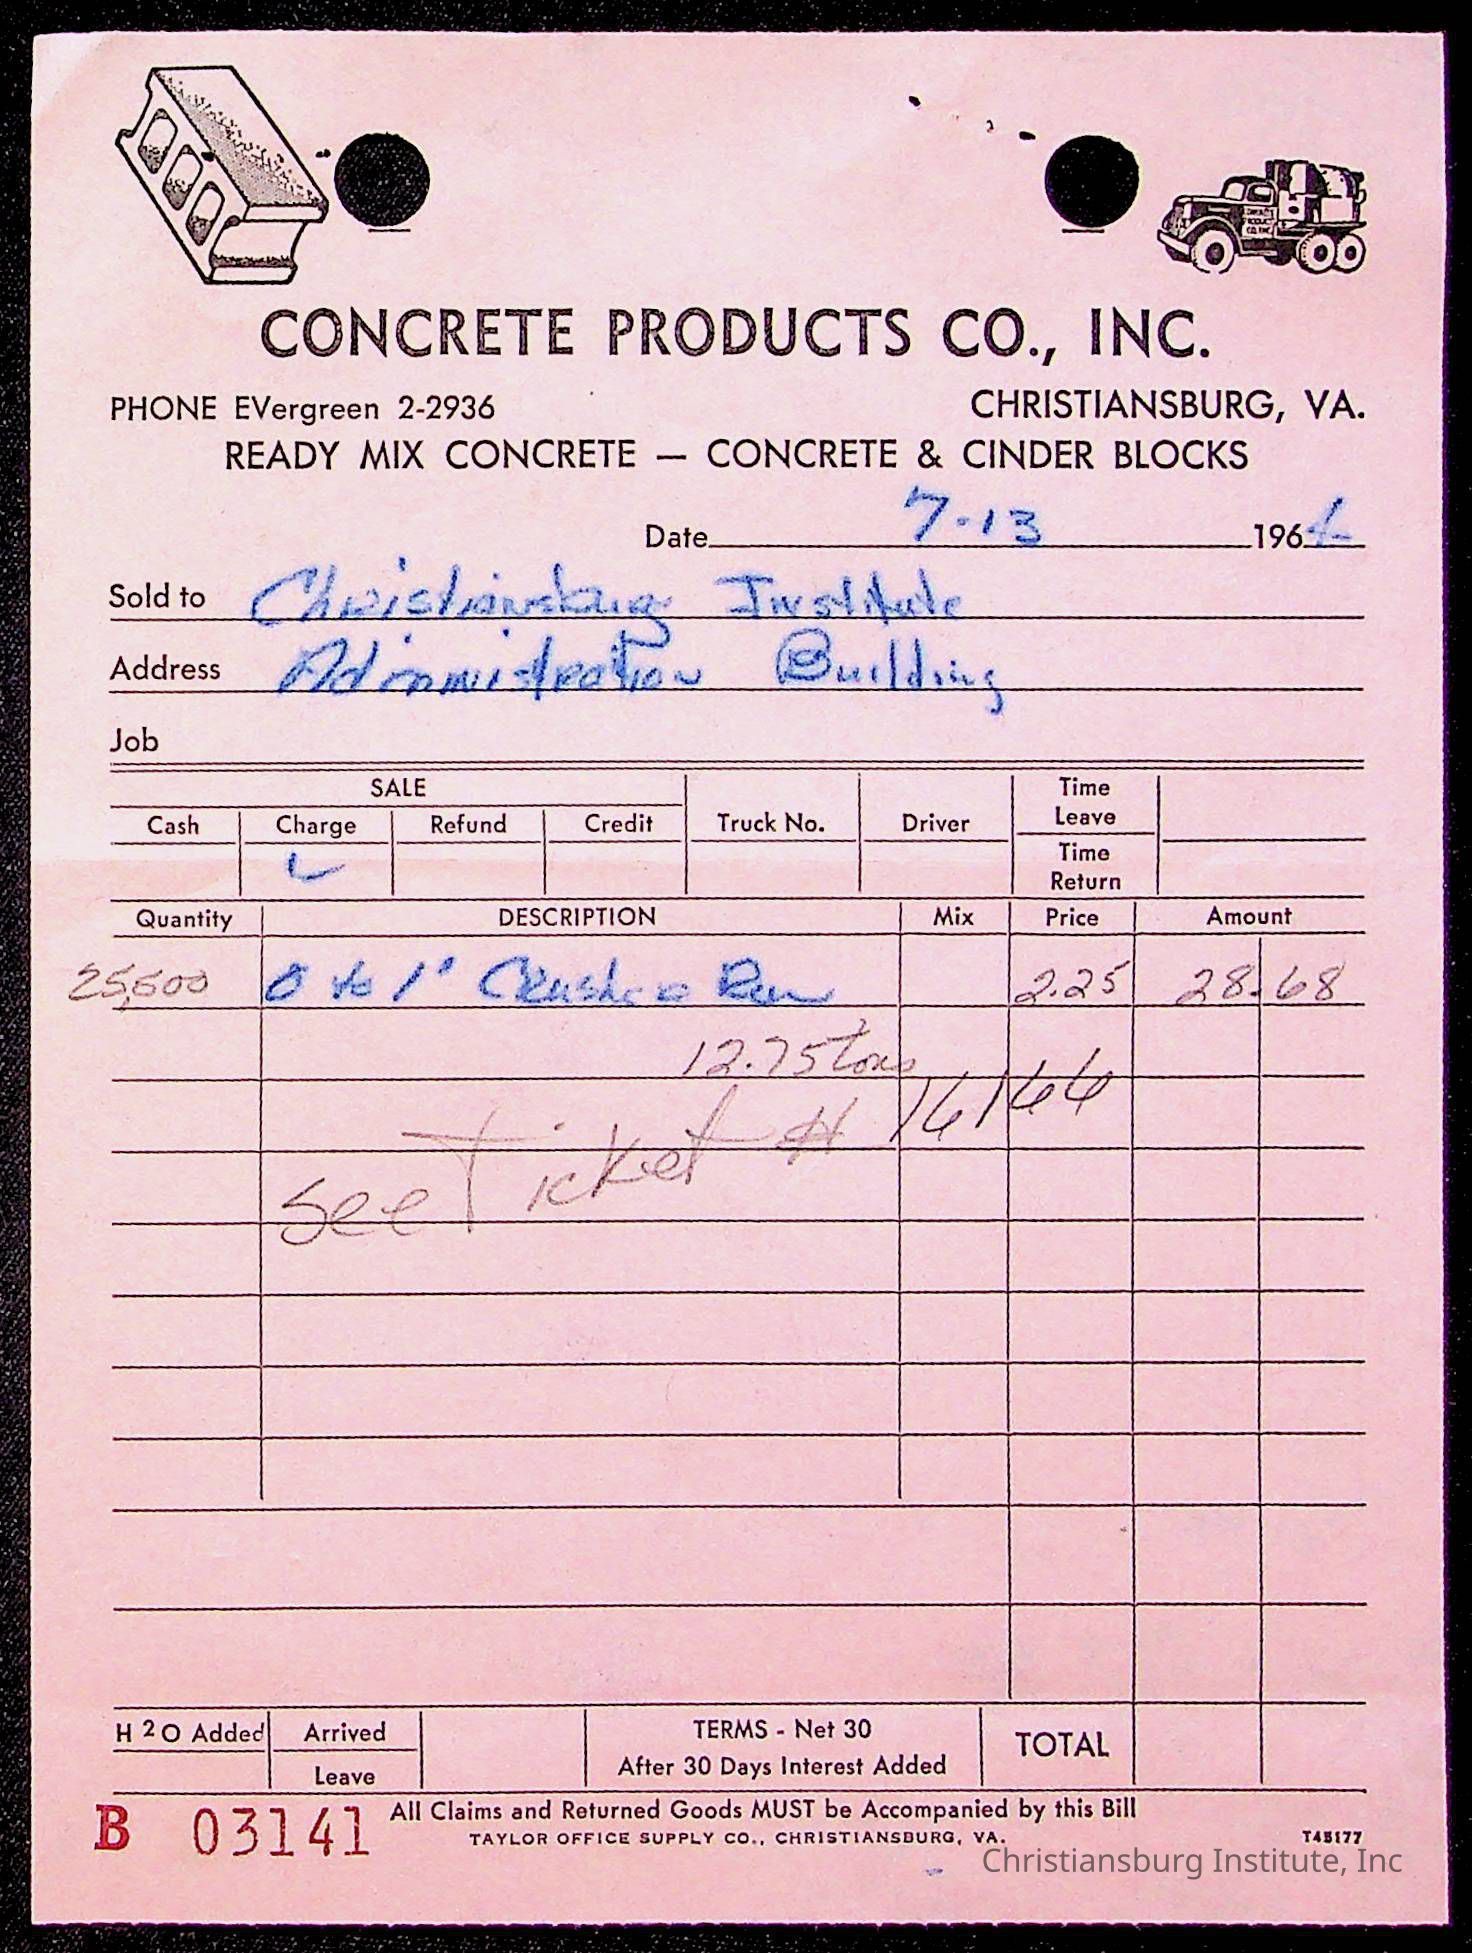 CONCRETE PRODUCTS CO., INC.
PHONE EVergreen 2-2936 CHRISTIANSBURG, VA.
READY MIX CONCRETE — CONCRETE & CINDER BLOCKS
Date 7-13 196
Sold to Christiansburg Institute
Address Administration Building
Job
SALE
Cash Charge Refund Credit Truck No. Driver Time Leave
Time Return
Quantity DESCRIPTION Mix Price Amount
25,500 0 to 1" Crusher Run 2.25 28.68
12.75 tons
See Ticket # 16166
H2O Added Arrived TERMS - Net 30 TOTAL
Leave After 30 Days Interest Added
B 03141 All Claims and Returned Goods MUST be Accompanied by this Bill
TAYLOR OFFICE SUPPLY CO., CHRISTIANSBURG, VA. T45177
Christiansburg Institute, Inc